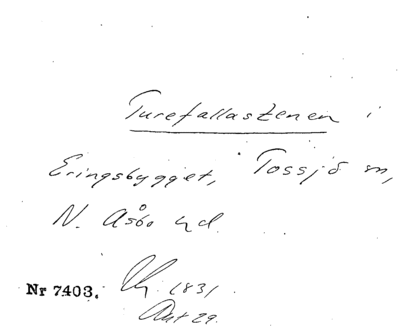 Turefallastenen i
Eringsbygget, Tossjö sn,
N. Åsbo hd.
Nr 7403. 1831
Ant 29.